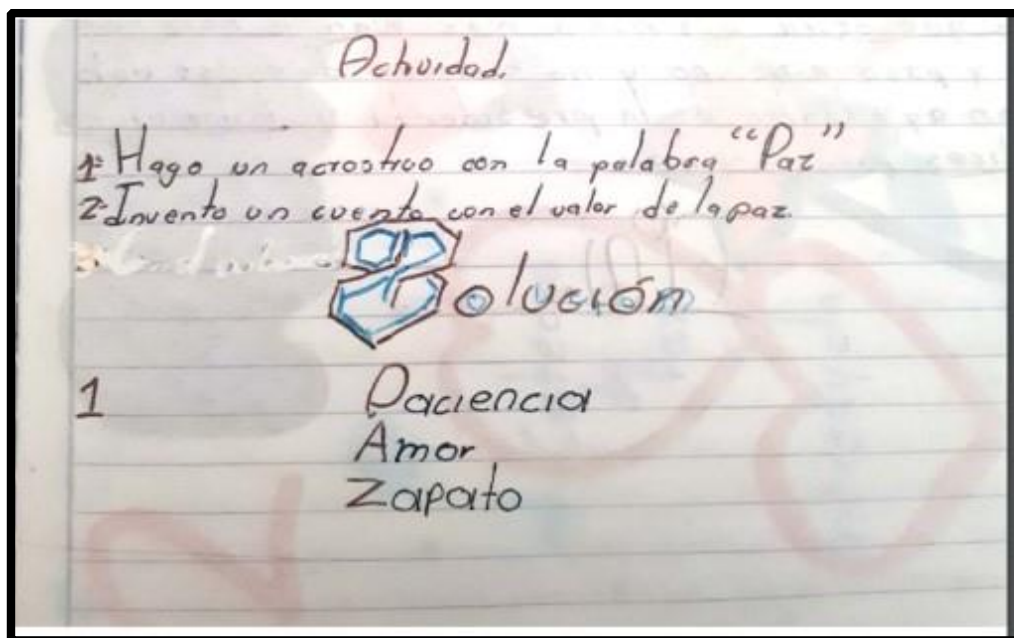 Actividad.
1º Hago un acrostico con la palabra "Paz"
2-Invento un cuento con el valor de la paz.
Solución
1 Paciencia
Amor
Zapato